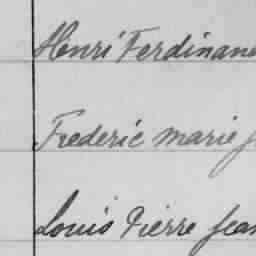 Henri Ferdinand
Frederic marie
Louis Pierre Jean